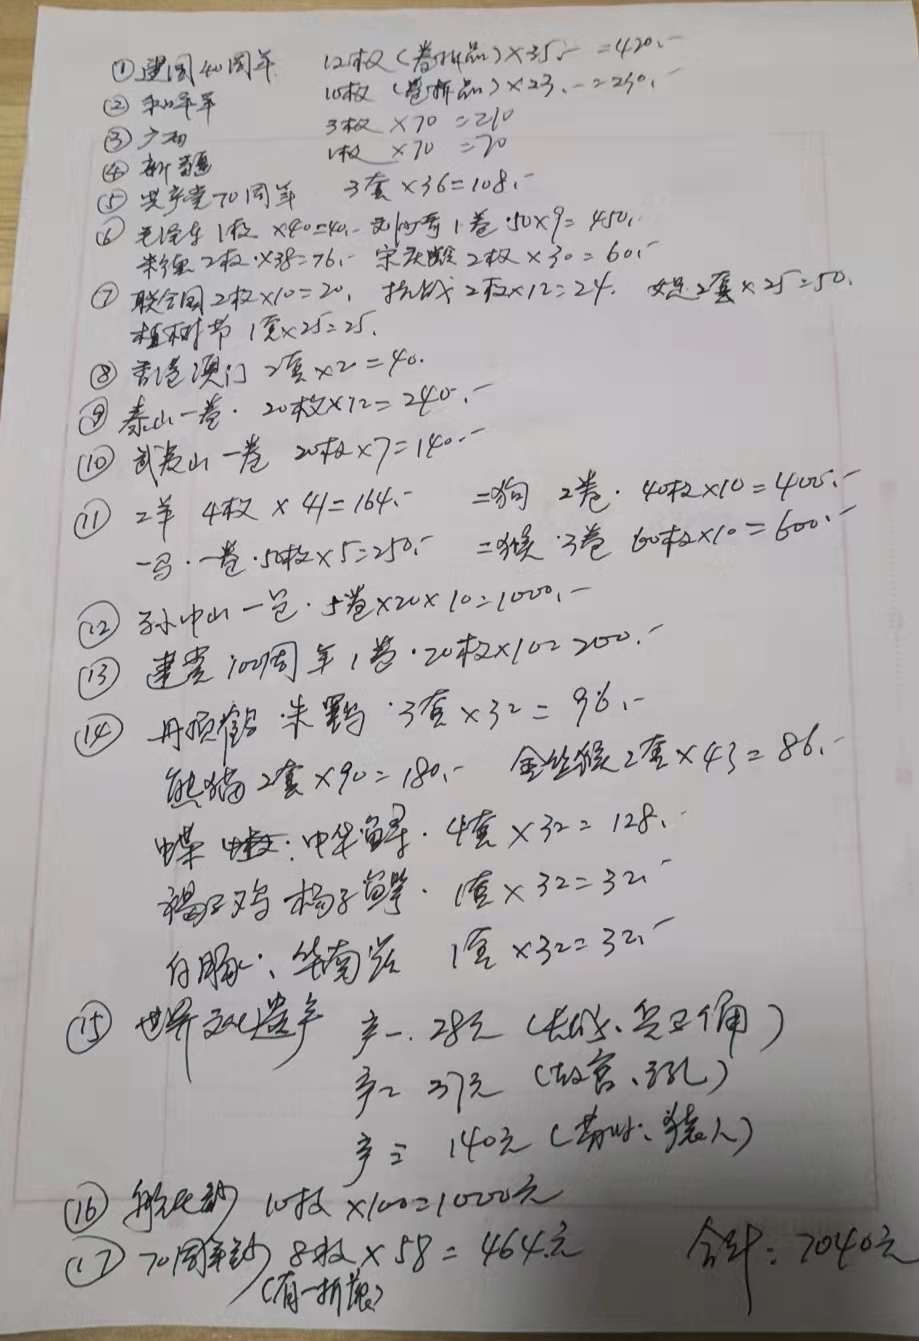 ① 建国40周年 12枚(卷拆品)×35.- =420.-
② 和平年 10枚(卷拆品)×23.- =230.-
③ 广西 3枚×70=210
④ 新疆 1枚×70=70
⑤ 共产党70周年 3套×36=108.-
⑥ 毛泽东1枚×40=40.- 刘少奇1卷·50×9=450.-
朱德2枚·×38=76.- 宋庆龄2枚×30=60.-
⑦ 联合国2枚×10=20. 抗战2枚×12=24. 2套×25=50.
植树节1套×25=25.
⑧ 香港澳门2套×20=40.
⑨ 泰山一卷·20枚×12=240.-
⑩ 武夷山一卷 20枚×7=140.-
⑪ 二羊 4枚×41=164.- 二狗 2卷·40枚×10=400.-
一马·一卷·50枚×5=250.- 二猴·3卷 60枚×10=600.-
⑫ 孙中山一·5卷×20×10=1000.-
⑬ 建党100周年1卷·20枚×10=200.-
⑭ 丹顶鹤·朱鹮·3套×32=96.-
熊猫2套×90=180.- 金丝猴2套×43=86.-
蝶 中华鲟·4套×32=128.-
褐马鸡 扬子鳄·1套×32=32.-
白暨豚·、华南虎 1套×32=32.-
⑮ 世界文化遗产 产一.28元(长城、兵马俑)
产二 37元(故宫、孔)
产三 140元(苏州、猿人)
⑯ 航天钞 10枚×100=1000元
⑰ 70周年钞 8枚×58=464元 合计:7040元
(有一折痕)